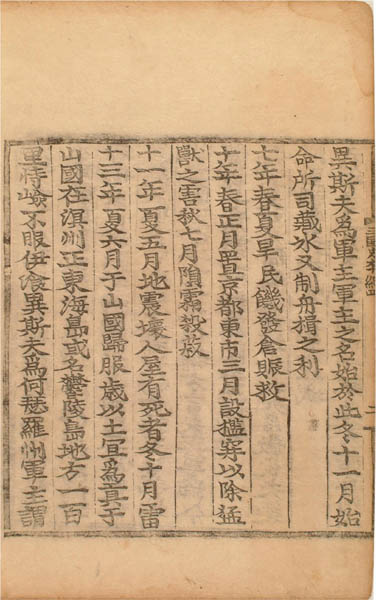 異斯夫爲軍主軍主之名始於此冬十一月始
命所司藏氷又制舟楫之利
七年春夏旱民饑發倉賑救
十年春正月置京都東市三月設檻穽以除猛
獸之害秋七月隕霜殺菽
十一年夏五月地震壞人屋有死者冬十月雷
十三年夏六月于山國歸服歲以土宜爲貢于
山國在溟州正東海島或名鬱陵島地方一百
里恃嶮不服伊湌異斯夫爲何瑟羅州軍主謂